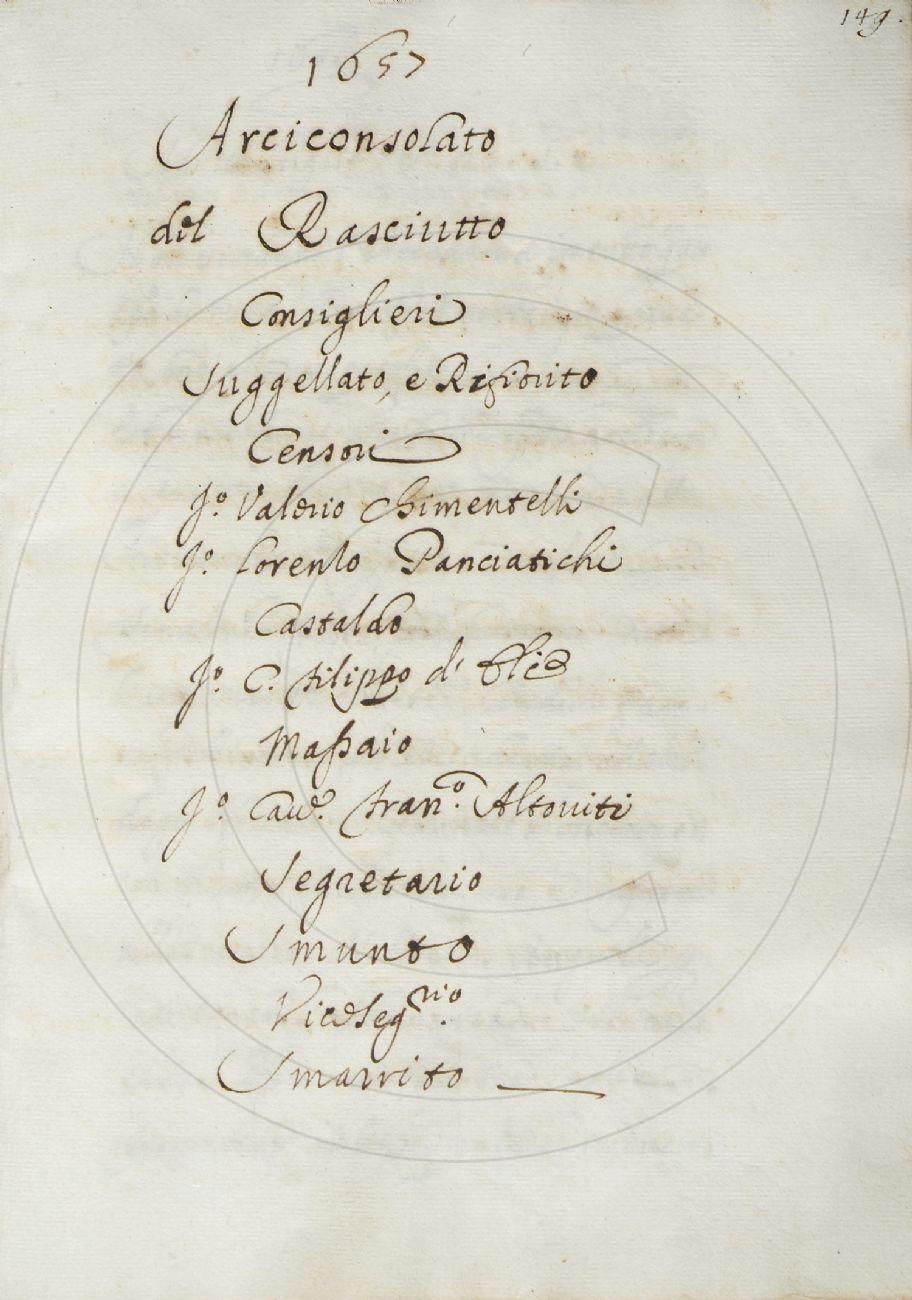 149.
1657
Arciconsolato
del Rasciutto
Consiglieri
Suggellato, e Rifiorito
Censori
Jo. Valerio Chimentelli
Jo. Lorenzo Panciatichi
Castaldo
Jo. C. Filippo d'
Massaio
Jo. Cavre. Frano. Altoviti
Segretario
Smunto
Vicesegrio.
Smarrito